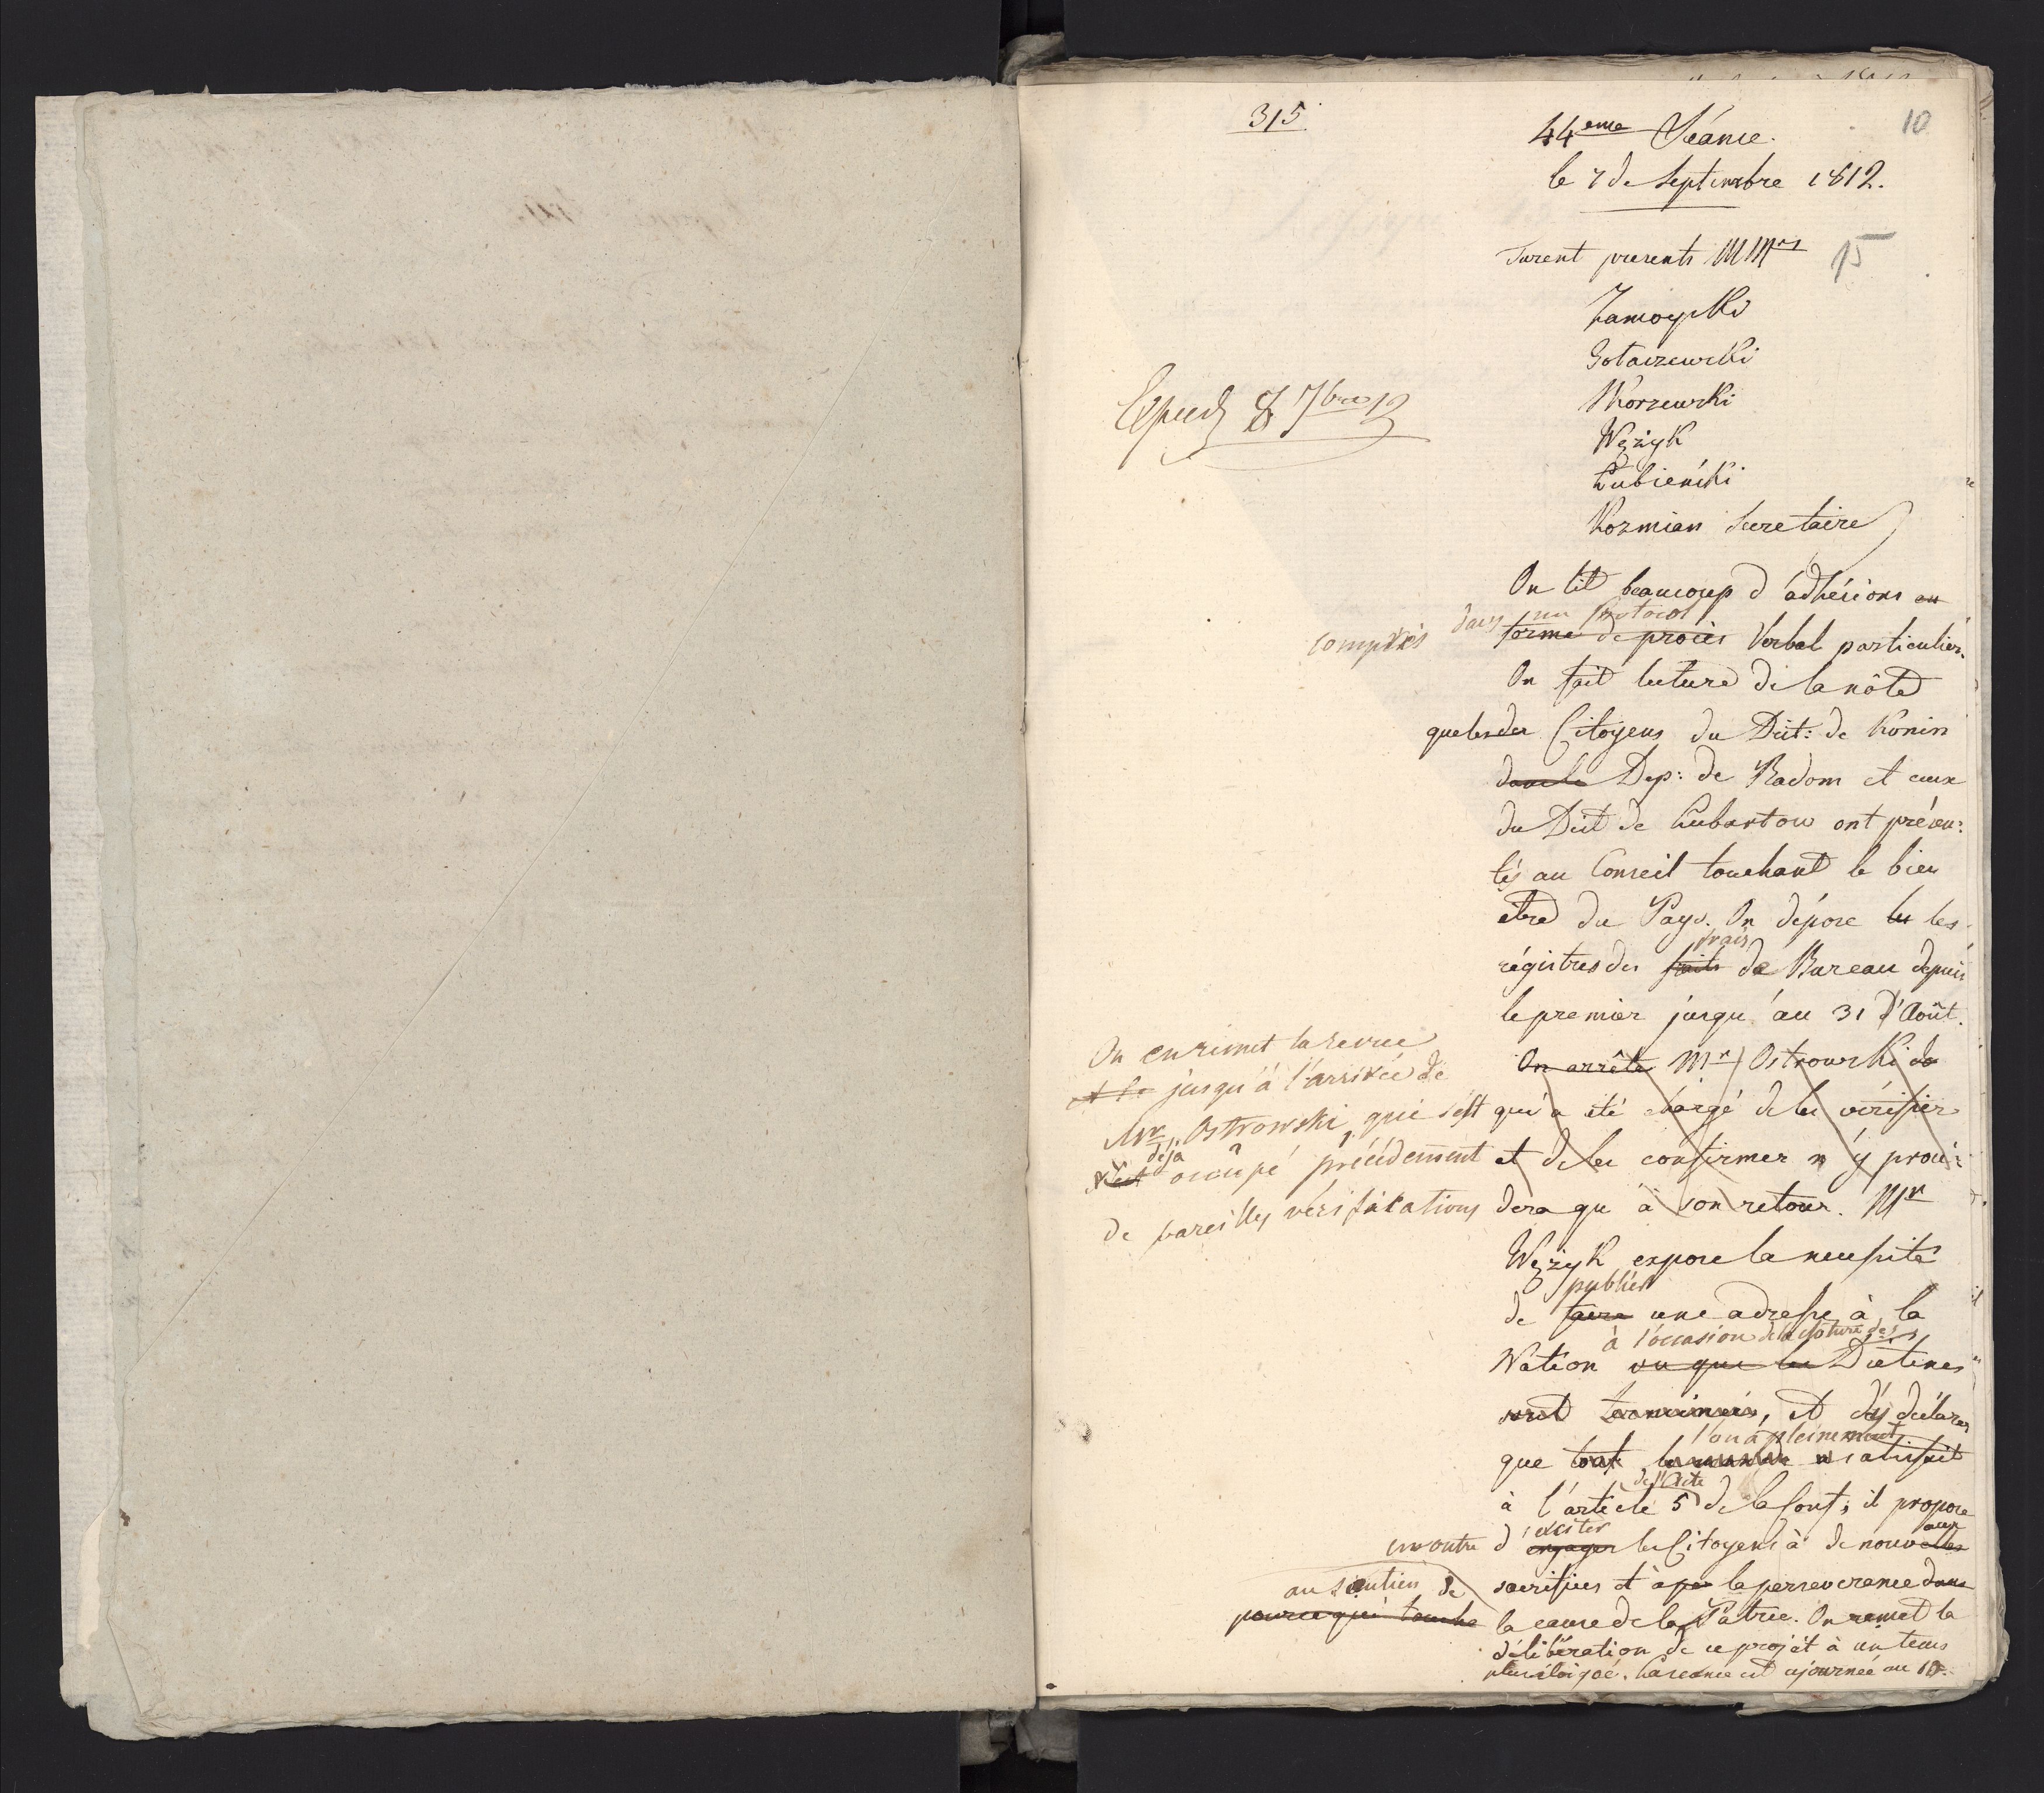 315
10
44eme Séance.
le 7 de Septembre 1812.
15
Furent presents MMrs
Zamoyski
Gołaszewski
Skorzewski
Wężyk
Łubieński
Kozmian Secretaire
Exped 8 7bre 12
On lit beaucoup d'ádhésions en
comprises dans un Protocol
forme de procès Verbal particulier.
On fait lecture de la nôte
que les des Citoyens du Distt: de Konin
dans le Dep: de Radom et ceux
du Distt de Lubartow ont présen:
tés au Conseil touchant le bien
etre du Pays. On dépose les les
frais
régistres des faits de Bureau depuis
le premier jusqu'au 31 d'Août.
On arrête Mr Ostrowski de
qui a été chargé de les vérifier
et de les confirmer n'y proce:
dera qu'à son retour. Mr
On en remet la revue
et la jusqu'à l'arrivée de
Mr Ostrowski, qui s'est
déja
s'est occupé précédement
de pareilles vérifications
Wężyk expose la necessité
publier
de faire une adresse à la
à l'occasion de la cloture des
Nation vu que les Dietines
sont terminées, et d'y déclarer
l'on a pleinement
que tout le monde a satisfait
de l'Acte
à l'article 5 de la Conf; il propose
en outre d'exciter
engager les Citoyens à de nouvelles
aux
sacrifices et à par la perseverance dans
au soutien de
pour ce qui touche
la cause de la Patrie. On remet la
déliberation de ce projet à un tems
plus éloigné. La seance est ajournée au 10.